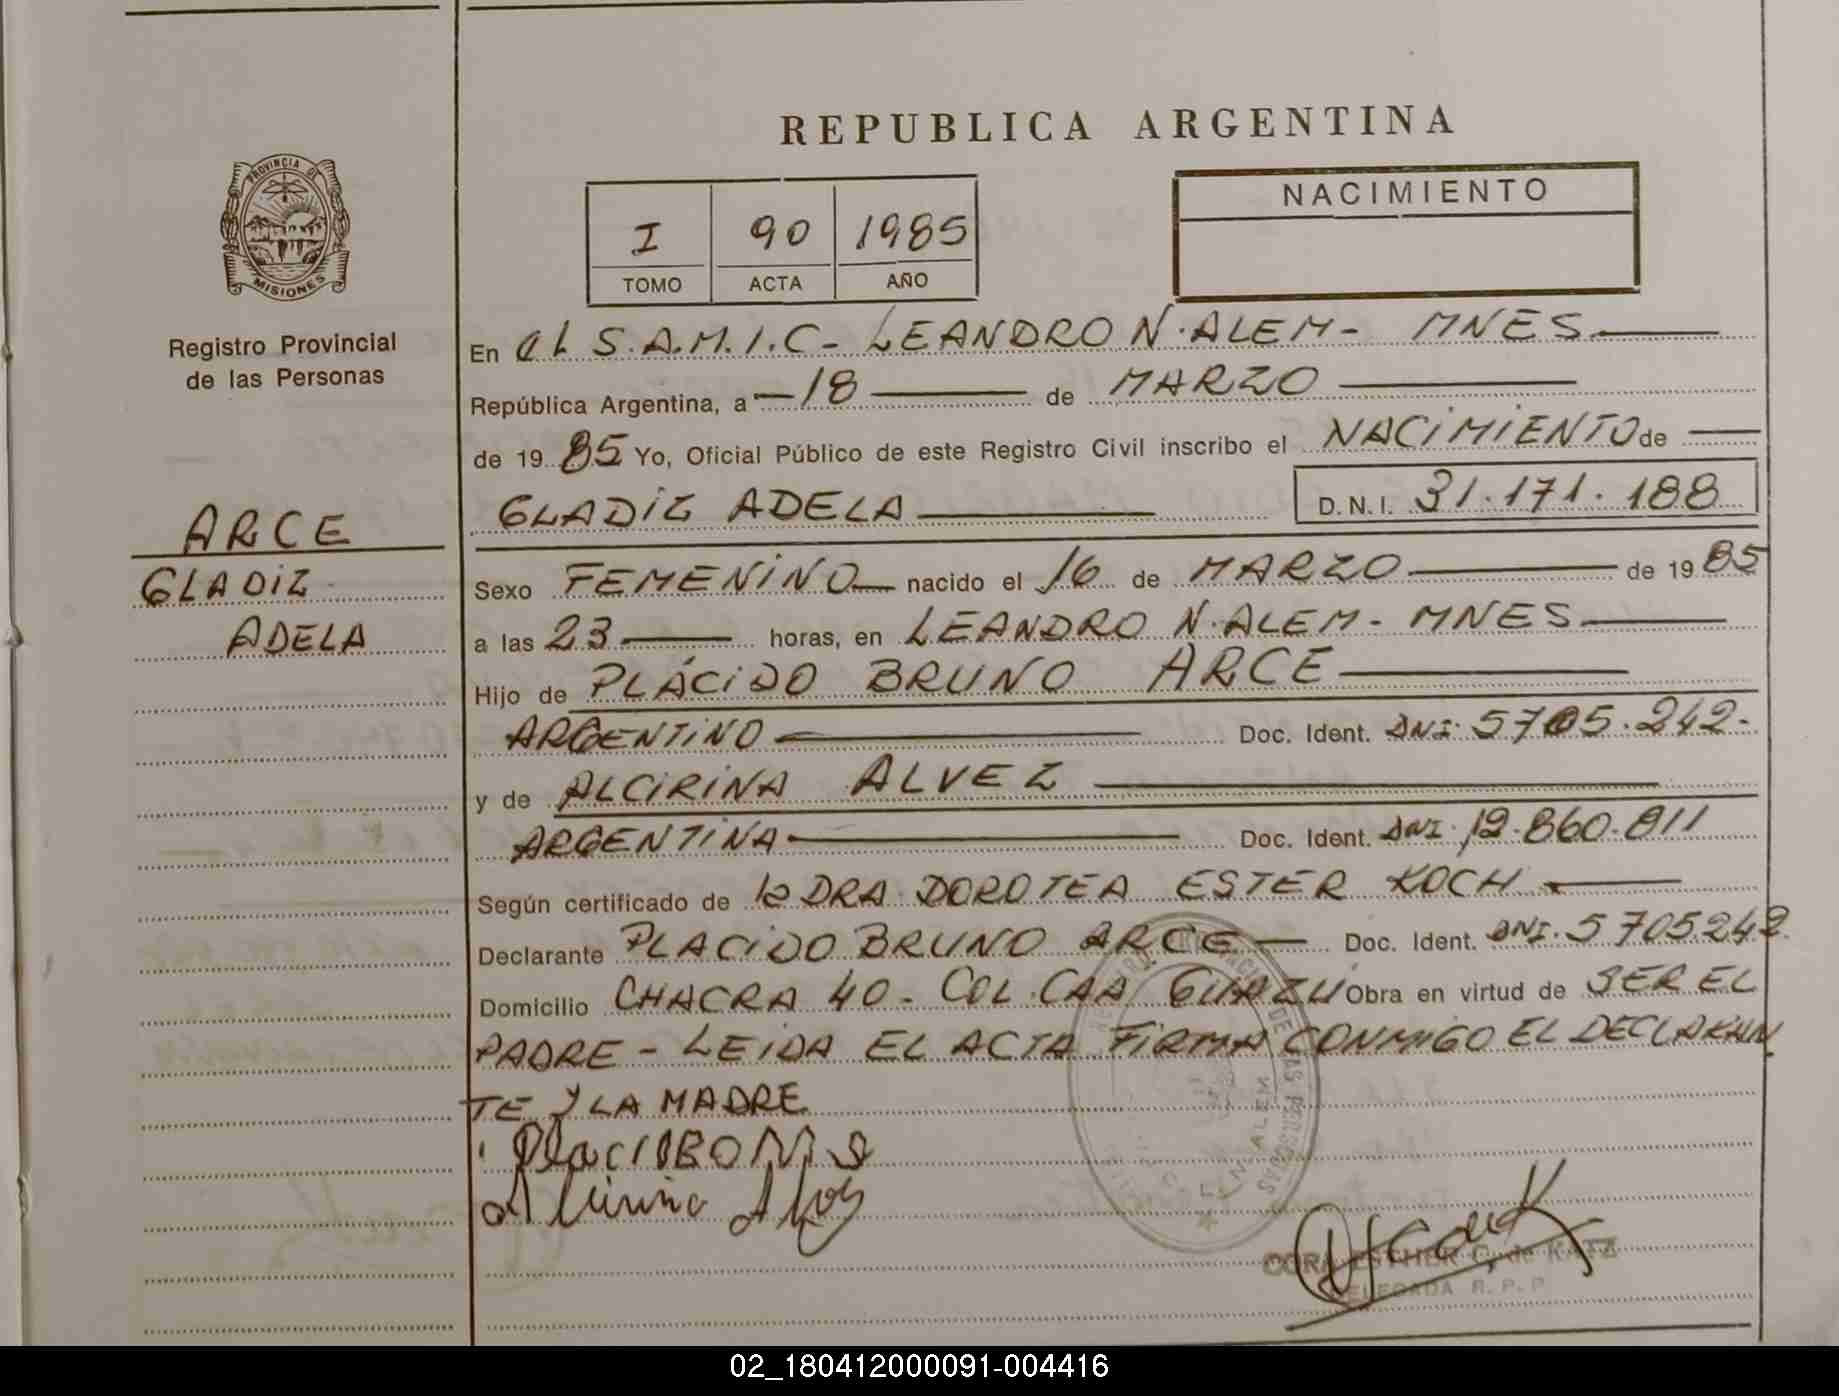 REPUBLICA ARGENTINA
PROVINCIA DE
MISIONES
Registro Provincial
de las Personas
I 90 1985
TOMO ACTA AÑO
NACIMIENTO
En el S.A.M.I.C- LEANDRO N. ALEM- MNES
República Argentina, a 18 de MARZO
de 19 85 Yo, Oficial Público de este Registro Civil inscribo el NACIMIENTO de
GLADIZ ADELA D.N.I. 31.171.188
ARCE
GLADIZ
ADELA
Sexo FEMENINO nacido el 16 de MARZO de 19 85
a las 23 horas, en LEANDRO N. ALEM- MNES
Hijo de PLÁCIDO BRUNO ARCE
ARGENTINO Doc. Ident. DNI. 5705.242-
y de ALCIRINA ALVEZ
ARGENTINA Doc. Ident. DNI. 12.860.811
Según certificado de la DRA. DOROTEA ESTER KOCH
Declarante PLACIDO BRUNO ARCE Doc. Ident. DNI. 5705242
Domicilio CHACRA 40- COL. CAA GUAZU Obra en virtud de SER EL
PADRE - LEIDA EL ACTA FIRMA CONMIGO EL DECLARAN
TE Y LA MADRE
CORA ESTHER C. de KATZ
DELEGADA R. P. P.
02_180412000091-004416